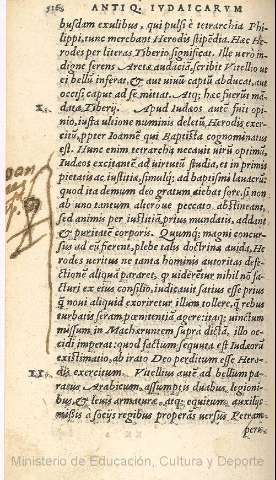 516 ANTIQ: IVDAICARVM
busdam exulibus, qui pulsi è tetrarchia Phi-
lippi, tunc merebant Herodis stipẽdia. Hæc He-
rodes per literas Tiberio significat. Ille verò in-
digne ferens Aretæ audaciã, scribit Vitellio ut
ei bellũ inferat, & aut uiuũ captũ abducat, aut
occisi caput ad se mittat. Atq; hæc fuerũt mã-
data Tiberij. Apud Iudæos autẽ fuit opi-
nio, iusta ultione numinis deletũ Herodis exer-
citũ, ppter Ioannẽ qui Baptista cognominatus
est. Hunc enim tetrarcha necauit uirũ optimũ,
Iudæos excitantẽ ad uirtutũ studia, et in primis
pietatis ac iustitiæ, simulq; ad baptismi lauacrũ:
quod ita demum deo gratum aiebat fore, si non
ab uno tantum alteroue peccato abstineant,
sed animis per iustitiã prius mundatis, addant
& puritatẽ corporis. Quumq; magni concur-
sus ad eũ fierent, plebe talis doctrinæ auida, He
rodes ueritus ne tanta hominis autoritas defe-
ctionẽ aliquã pararet, q uiderẽtur nihil nõ fa-
cturi ex eius consilio, iudicauit satius esse prius
q̃ noui aliquid exoriretur illum tollere, q̃ rebus
turbatis seram pœnitentiã agere: itaq; uinctum
missum in Machæruntem supra dictã, illo oc-
cidi imperat: quod factum sequuta est Iudæorũ
existimatio, ab irato Deo perditum esse Hero-
dis exercitum. Vitellius autẽ ad bellum pa-
ratus Arabicum, assumptis duabus legioni-
bus & leuis armaturæ, atq; equitum, auxilijs
missis à socijs regibus properãs uersus Petram
peru-
Ministerio de Educación, Cultura y Deporte